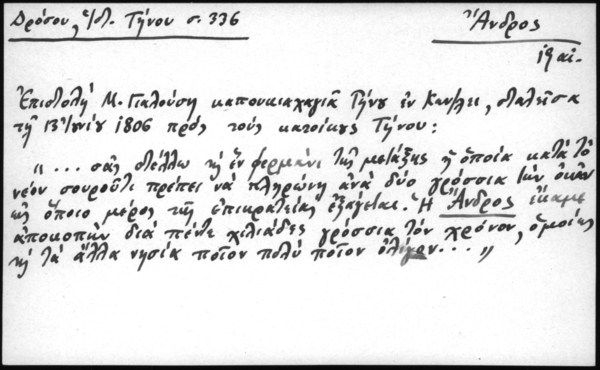 Δρόσου, Ἱστ. Τήνου σ. 336
Ἄνδρος
19 αἰ.
Ἐπιστολή Μ. Γιαλούση καπουκιαχαγιᾶ Τήνου ἐν Κων/λει, σταλεῖσα
τῇ 13 Ἰουνίου 1806 πρός τούς κατοίκους Τήνου:
"... σᾶς στέλλω κι ἕν φερμάνι τῆς μετάξης ἡ ὁποία κατά τό
νέον σουρούτι πρέπει νά πληρώνῃ ἀνά δύο γρόσσια τήν ὀκᾶν
εἰς ὅποιο μέρος τῆς ἐπικρατείας ἐξάγεται. Ἡ Ἄνδρος ἔκαμε
ἀποκοπήν διά πέντε χιλιάδες γρόσσια τόν χρόνον, ὁμοίως
κι τά ἄλλα νησία ποῖον πολύ ποῖον ὀλίγον..."